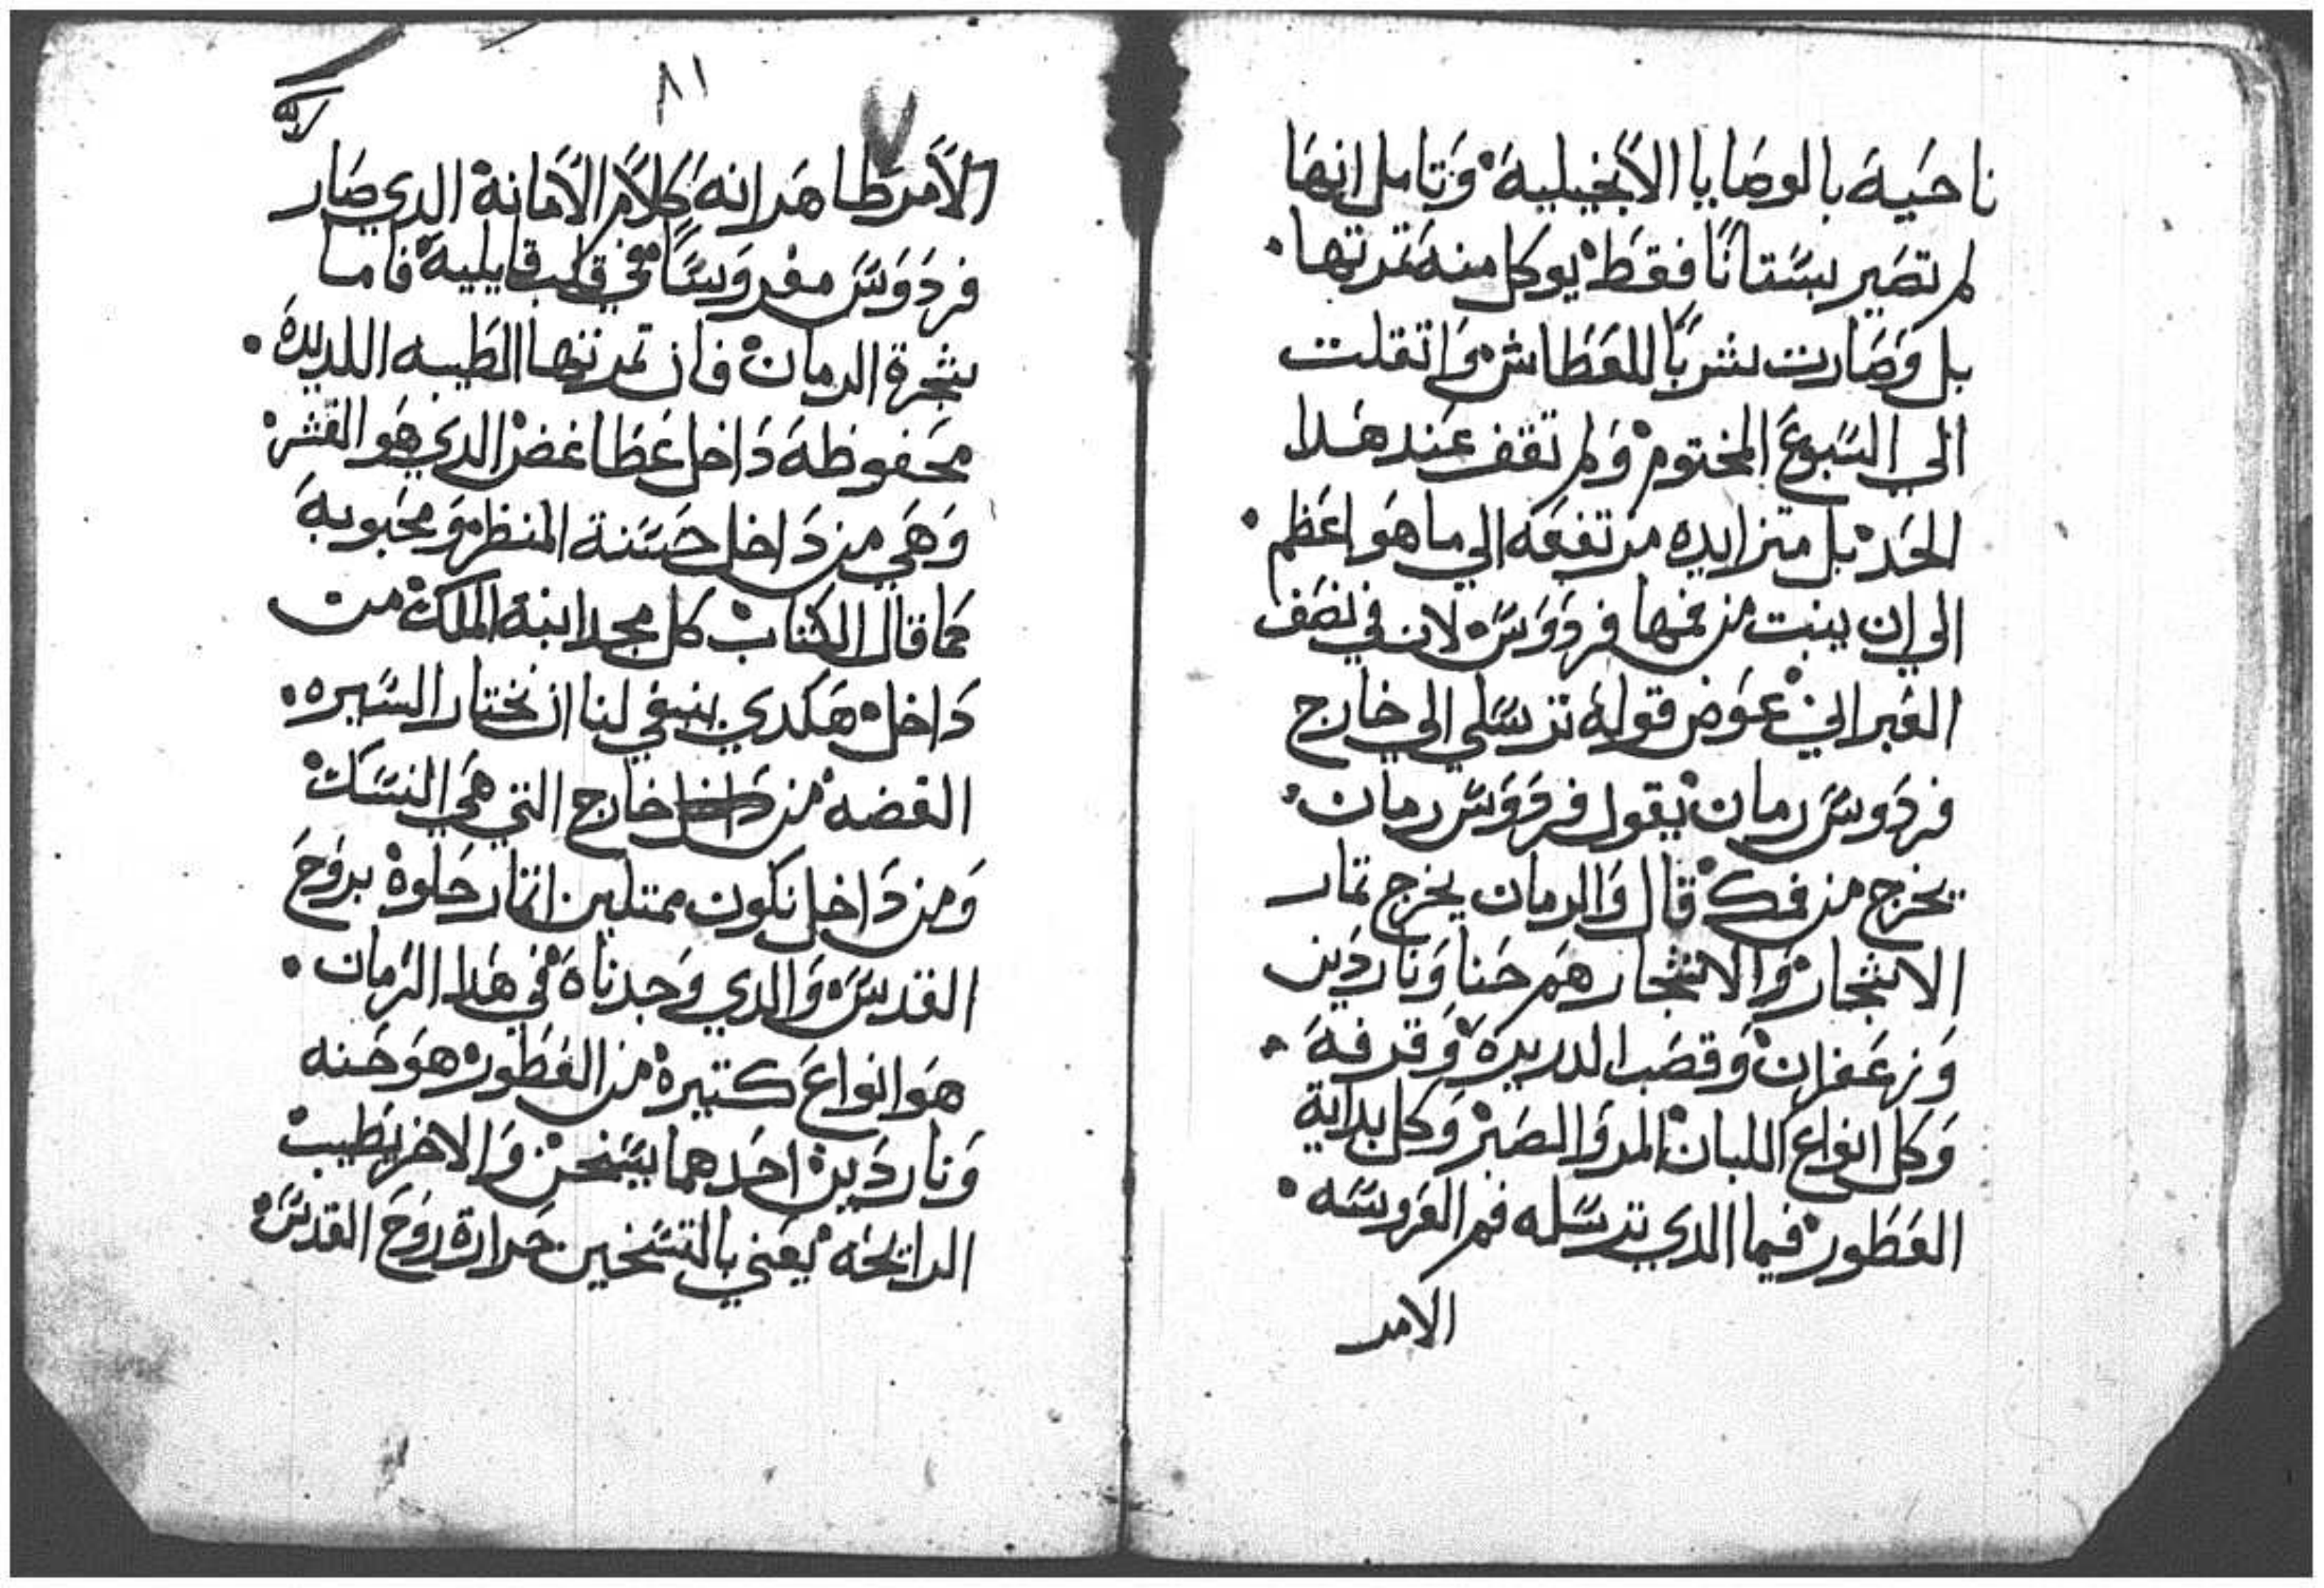 ناحية بالوصايا الانجيلية وتامل انها
لم تصير بستانًا فقط يوكل منه تمرتها
بل وصارت شربًا للعطاش واتقلت
الي السبوع المختوم ولم تقف عند هدا
الحد بل متزايده مرتفعه الي ما هو اعظم
الي ان ينبت من فمها فردوس لان في نصف
العبراني عوض قوله ترسلي الي خارج
فردوس رمان يقول فردوس رمان
يخرج من فمك قال والرمان يخرج تمار
الاشجار والاشجار هم حنا وناردين
وزعفران وقصب الدريرة وقرفة
وكل انواع اللبان المر والصبر وكل بداية
العطور فيما الدي ترسله فم العروسه
الامر
٨١
الامر ظاهر انه كلام الامانة الدي صار
فردوس مغروسًا في قلب قايليه فاما
شجرة الرمان فان تمرتها الطيبه اللديدة
محفوظة داخل غطا غض الدي هو القشر
وهي من داخل حسنة المنظر ومحبوبة
كما قال الكتاب كل مجد ابنة الملك من
داخل هكدي ينبغي لنا ان نختار السيره
الغضه من داخل خارج التي هي النسك
ومن داخل نكون ممتلين اتمار حلوة بروح
القدس والدي وجدناه في هدا الرمان
هو انواع كتيرة من العطور هو حنه
وناردين احدهما يسخن والاخر يطيب
الرايحه يعني بالتسخين حرارة روح القدس